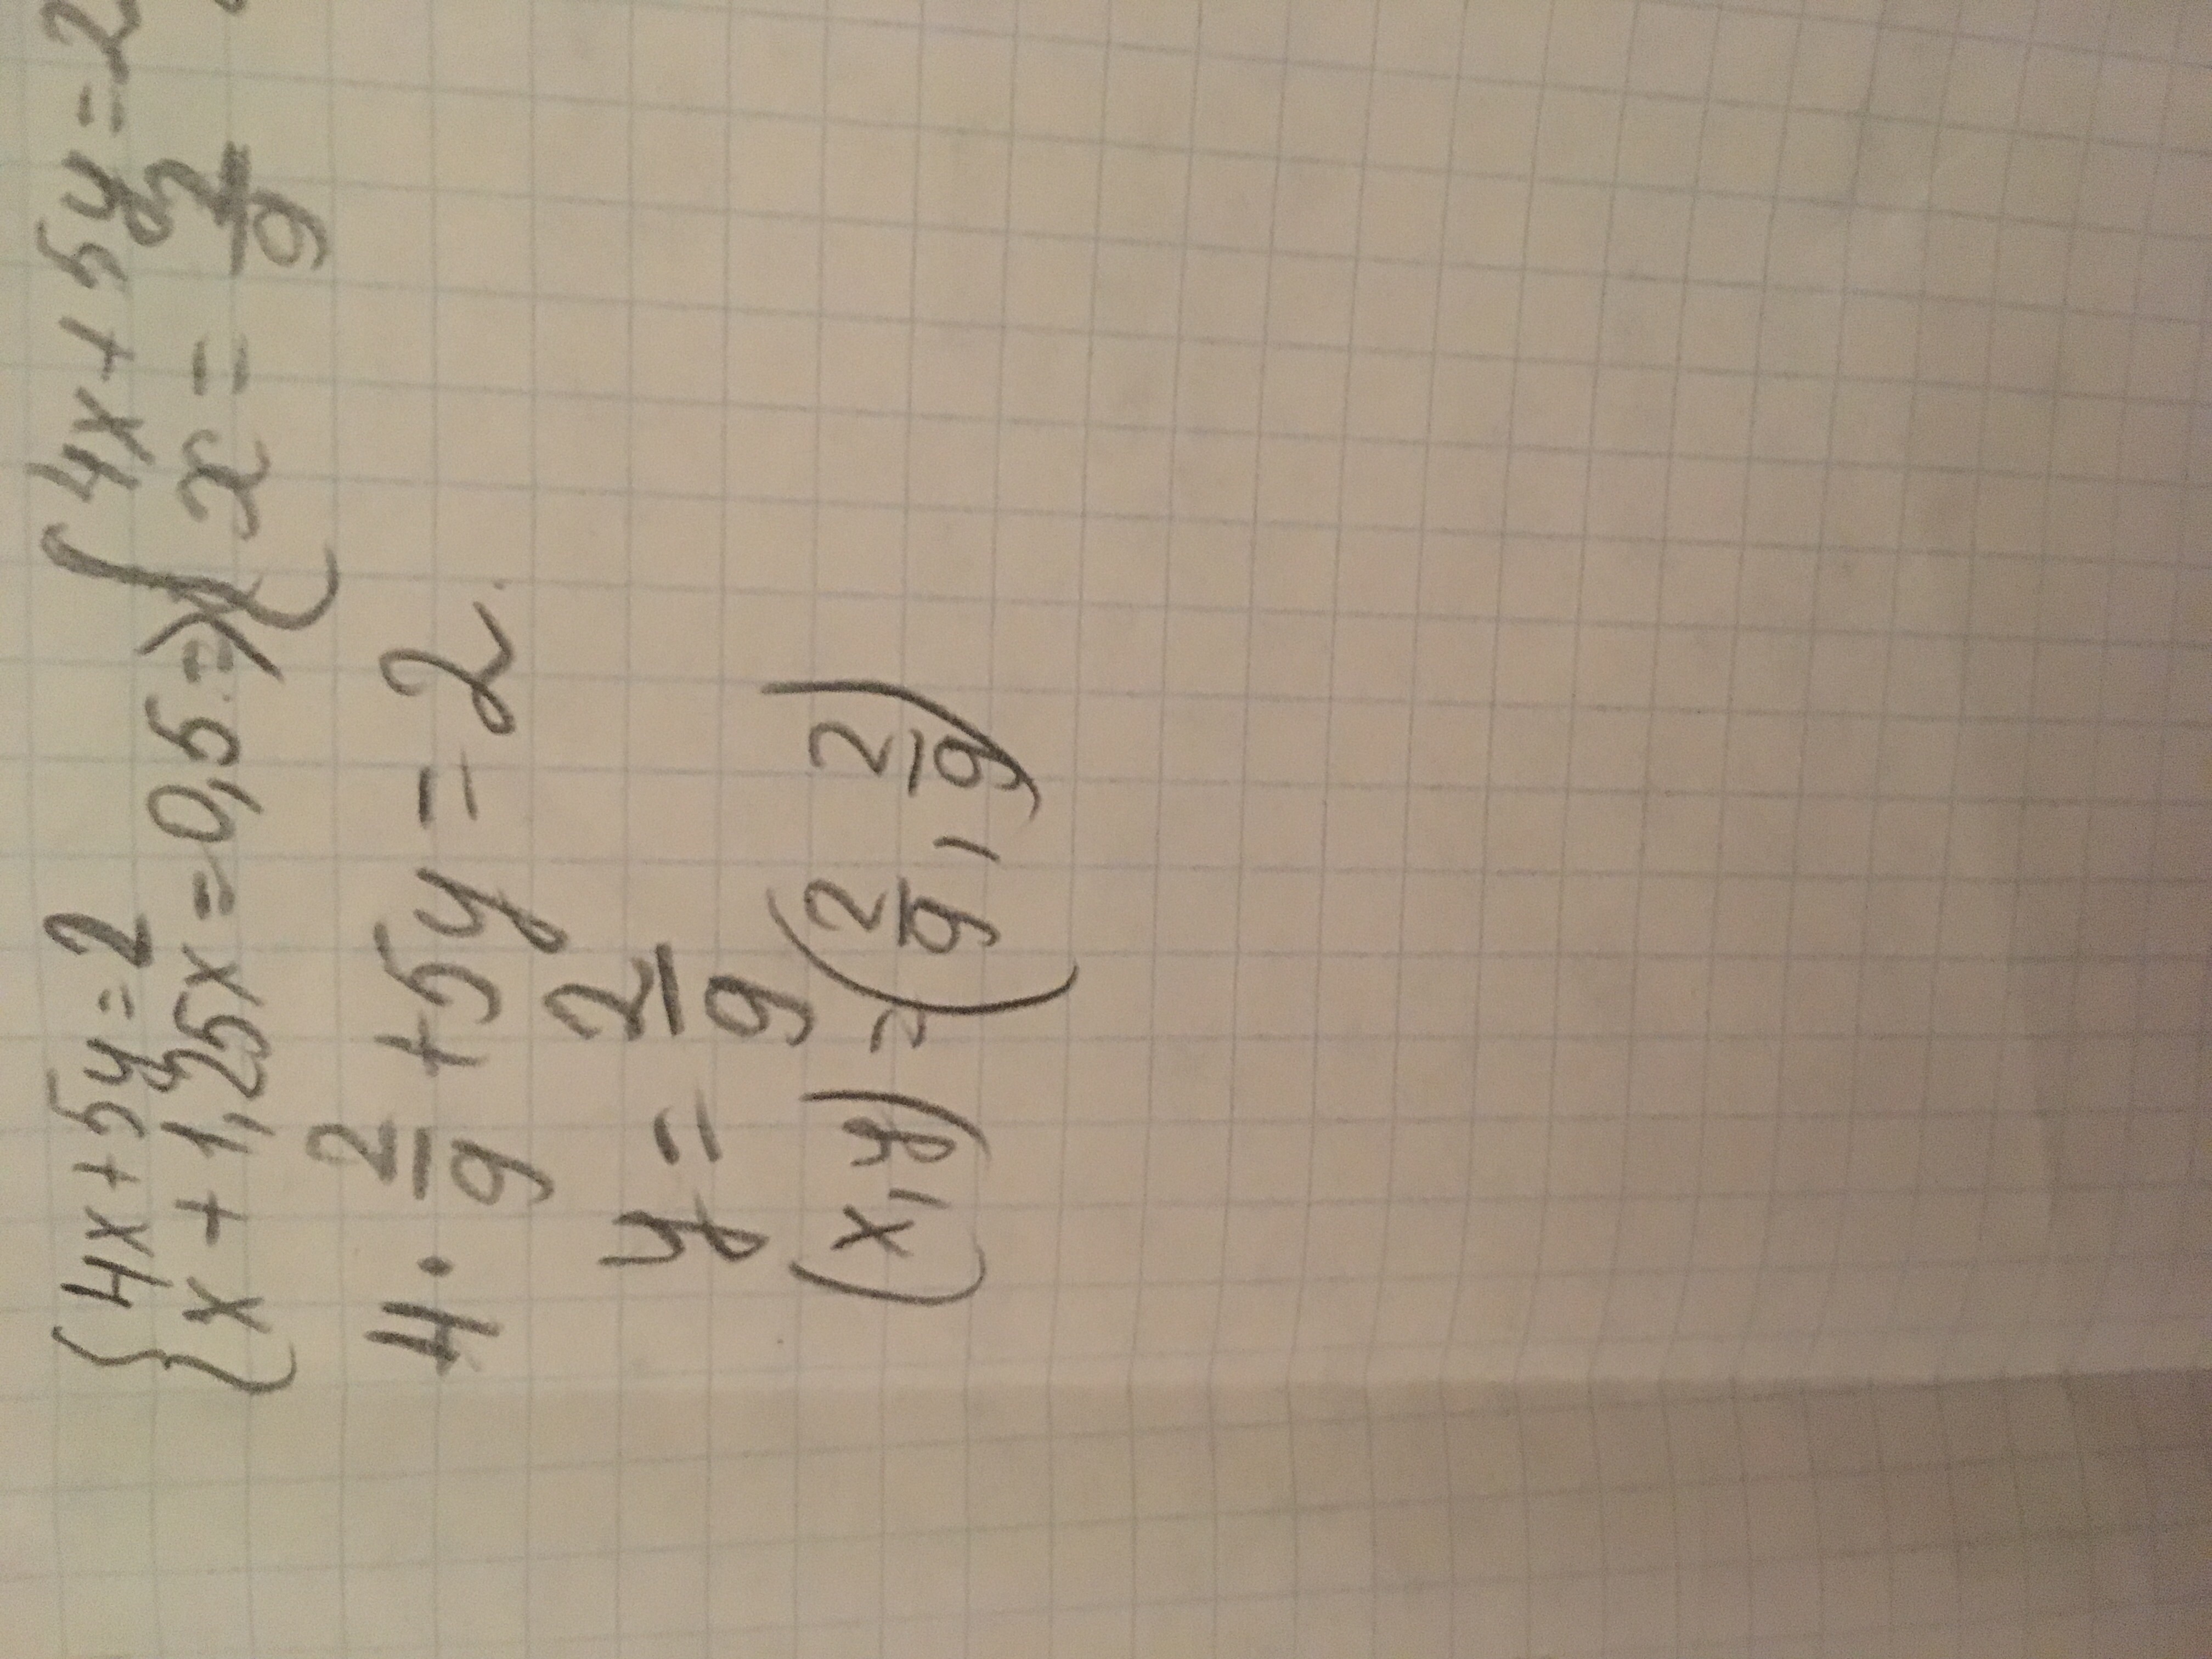 {4x + 5y = 2
{x + 1,25x = 0,5 => {4x + 5y = 2
x = 2/9
4 · 2/9 + 5y = 2
y = 2/9
(x, y) = (2/9, 2/9)